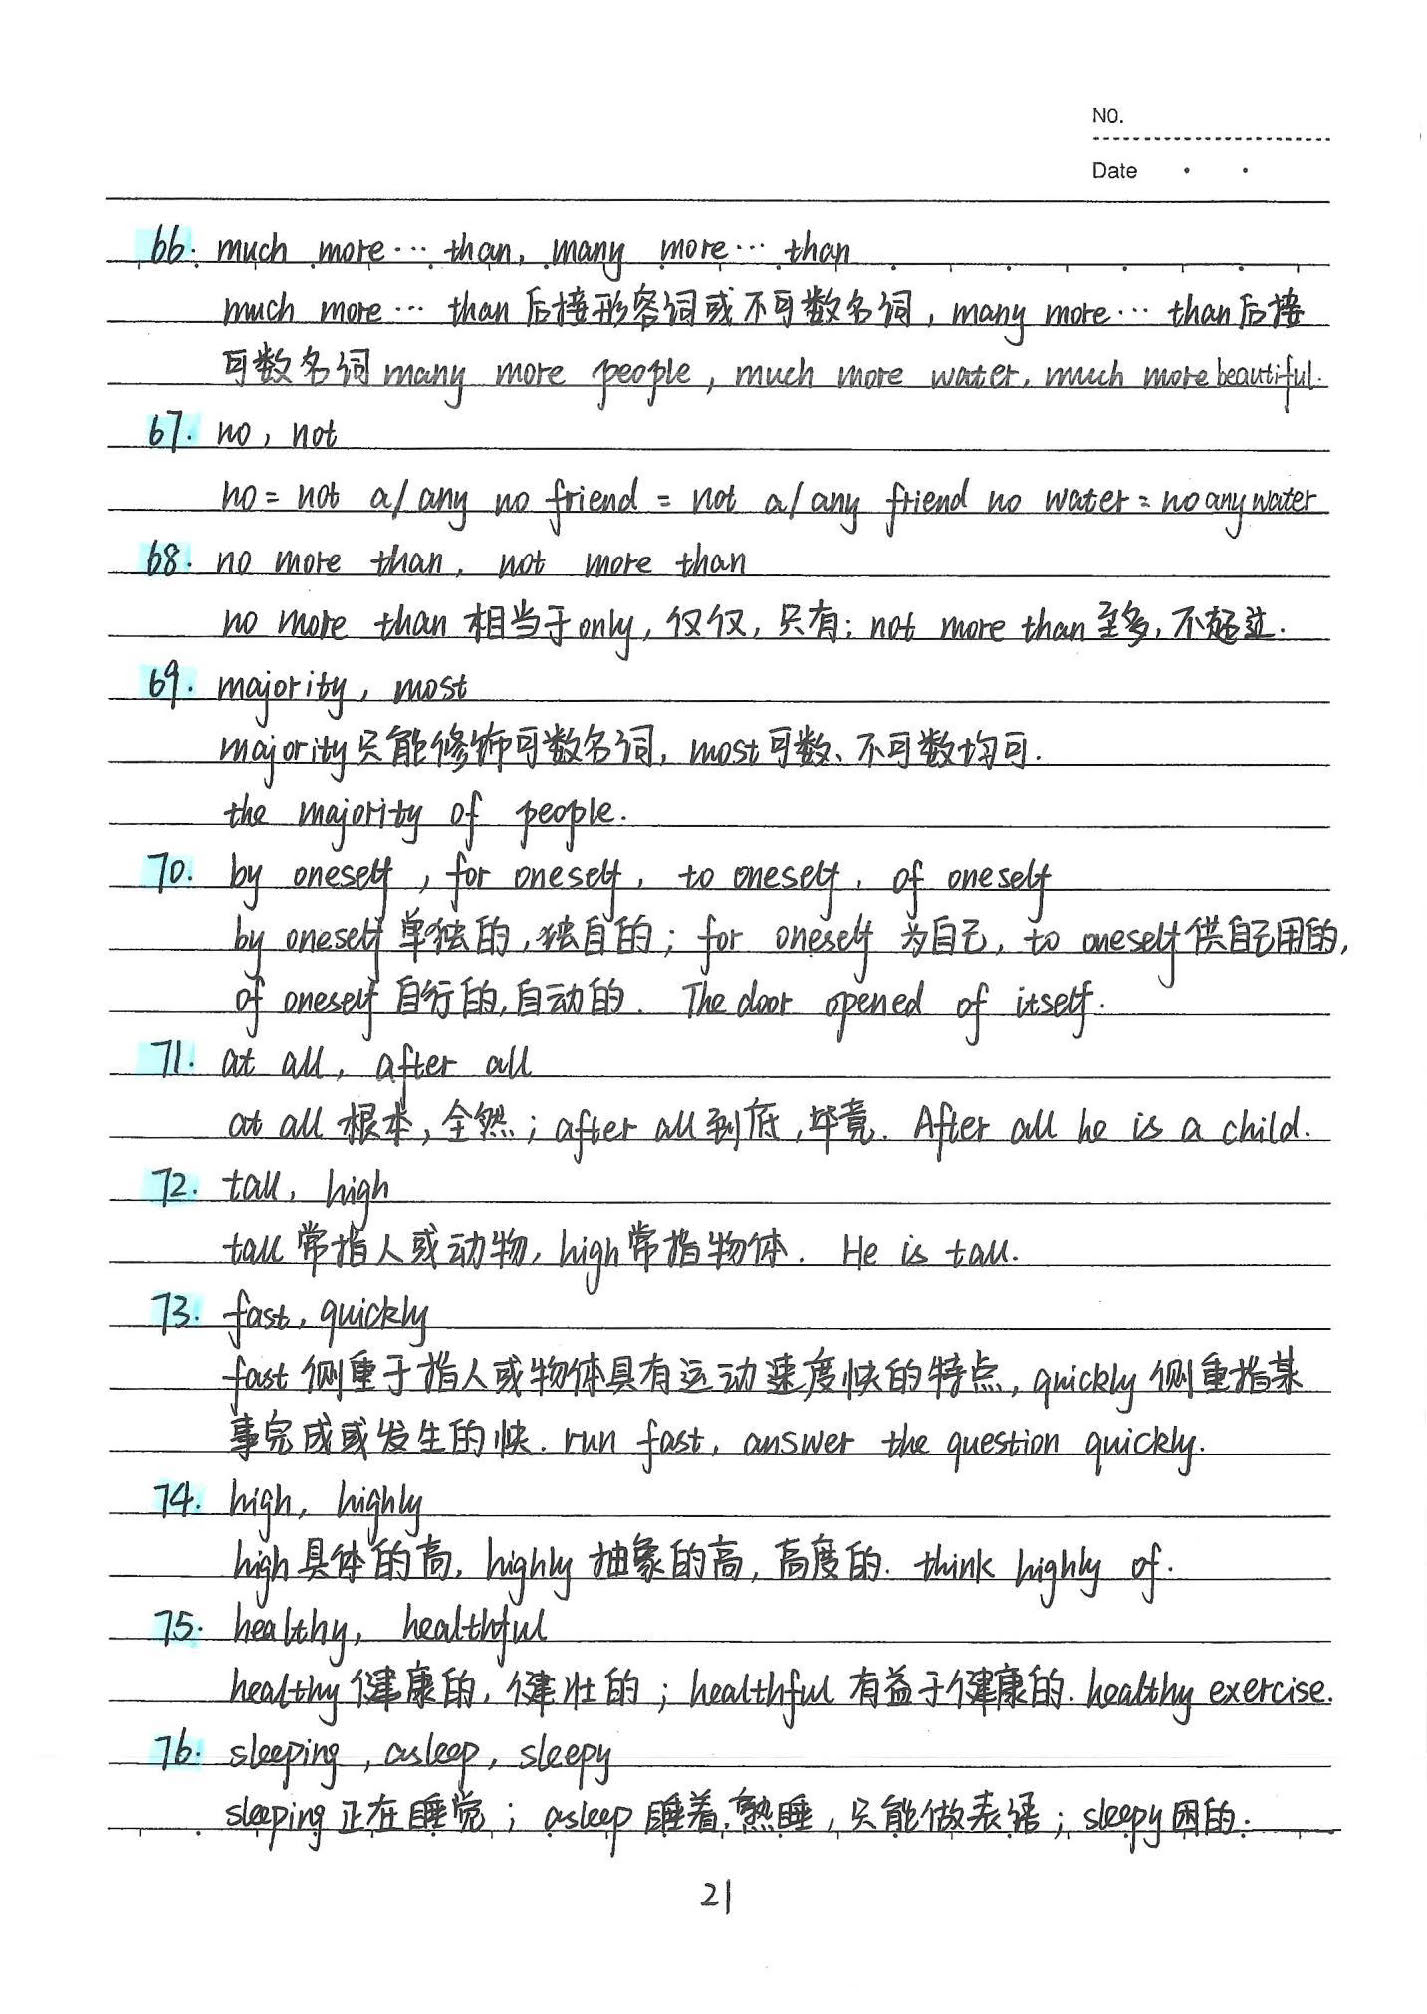 NO.
Date
66. much more… than, many more… than
much more… than后接形容词或不可数名词, many more… than后接
可数名词 many more people, much more water, much more beautiful.
67. no, not
no = not a/any no friend = not a/any friend no water = no any water
68. no more than, not more than
no more than 相当于only, 仅仅, 只有; not more than 至多, 不超过.
69. majority, most
majority只能修饰可数名词, most可数、不可数均可.
the majority of people.
70. by oneself, for oneself, to oneself, of oneself
by oneself 单独的,独自的; for oneself 为自己, to oneself供自己用的,
of oneself 自行的,自动的. The door opened of itself.
71. at all, after all
at all 根本,全然; after all到底,毕竟. After all he is a child.
72. tall, high
tall 常指人或动物, high常指物体. He is tall.
73. fast, quickly
fast 侧重于指人或物体具有运动速度快的特点, quickly 侧重指某
事完成或发生的快. run fast, answer the question quickly.
74. high, highly
high具体的高, highly 抽象的高,高度的. think highly of.
75. healthy, healthful
healthy 健康的,健壮的; healthful 有益于健康的. healthy exercise.
76. sleeping, asleep, sleepy
sleeping 正在睡觉; asleep 睡着,熟睡,只能做表语; sleepy困的.
21